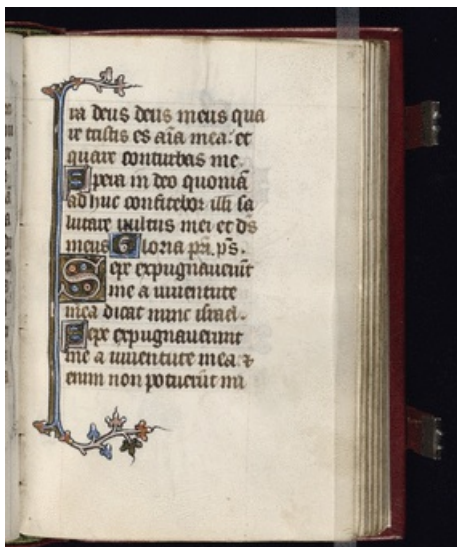 ra deus deus meus qua
re tristis es aīa mea: et
quare conturbas me.
Spera in deo quoniā
ad huc confitebor illi sa
lutare vultus mei et dṡ
meus Gloria pri. ps.
Sepe expugnaverūt
me a iuventute
mea dicat nunc israel.
Sepe expugnaverunt
me a iuventute mea. &
enim non potuerūt mi